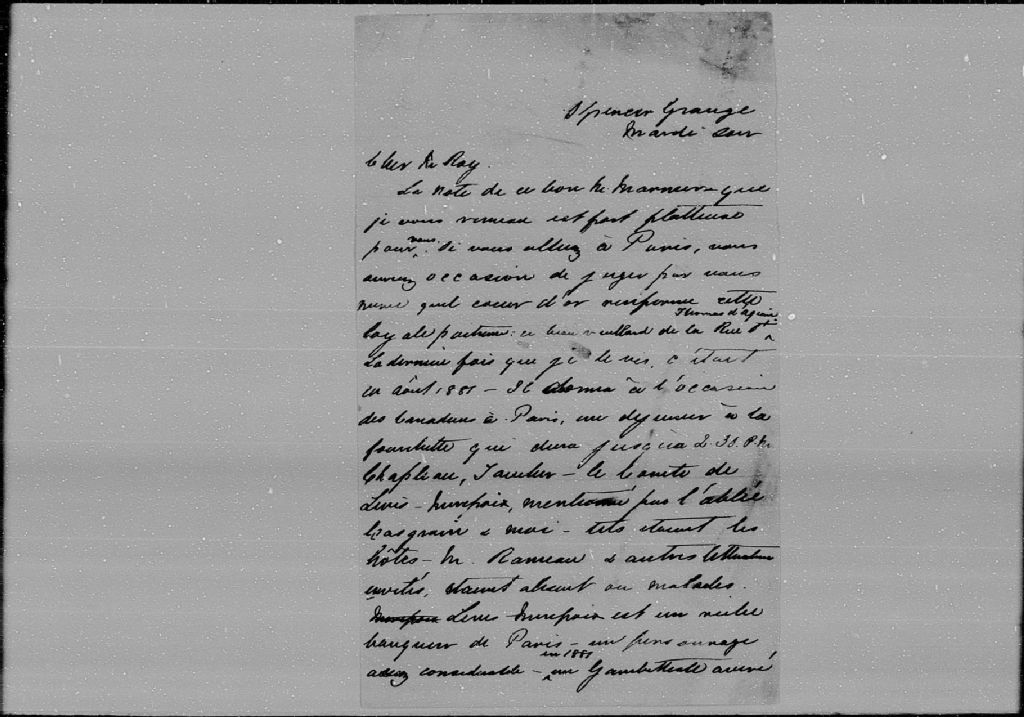 Spencer Grange
Mardi soir
Cher Mr Roy.
La note de ce bon Mr Marmier que
je vous remens est fort flatteuse
pour vous. Si vous allez à Paris, vous
aurez occasion de juger par vous
meme quel coeur d'or renferme cette
loyale poitrine: ce beau vieillard de la Rue St Thomas d'Aquin.
La derniere fois que je le vis, c'était
en août 1881 - Il donna à l'occasion
des Canadiens à Paris, un dejeuner à la
fourchette qui dura jusqu'à 2.30. P.M
Chapleau, - le Comte de
Levis - Mirepoix, mentionné par l'abbé
Casgrain & moi - tels étaient les
hôtes - M. Rameau & autres
invités, étaient absent ou malades.
Levis - Mirepoix est un riche
banquier de Paris - un personnage
assez considerable - en 1881 un Gambettiste avéré